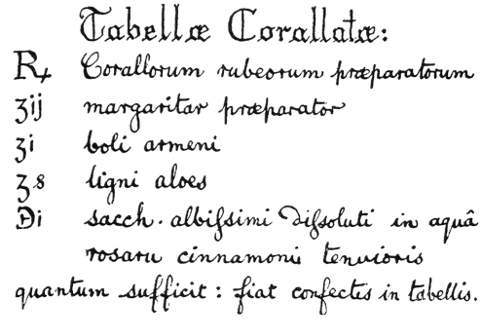 Tabellæ Corallatæ:
℞ Corallorum rubeorum præparatorum
ʒij margaritar præparator
ʒi boli armeni
ʒs ligni aloes
℈i sacch. albiſsimi diſsoluti in aquâ
rosaru cinnamoni tenuioris
quantum sufficit: fiat confectes in tabellis.